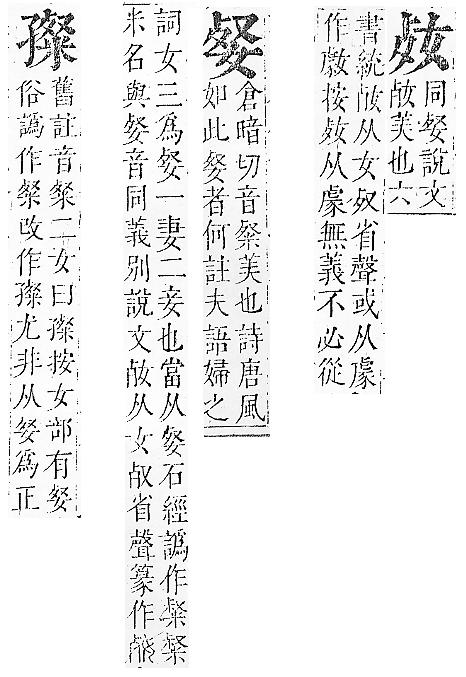 同㛑說文
美也六
書統从女省聲或从䖒
作按从䖒無義不必從
㛑
倉暗切音粲美也詩唐風
如此㛑者何註夫語婦之
詞女三爲㛑一妻二妾也當从㛑石經譌作粲粲
米名與㛑音同義別說文从女省聲篆作
舊註音粲二女曰按女部有㛑
俗譌作粲改作尤非从㛑爲正